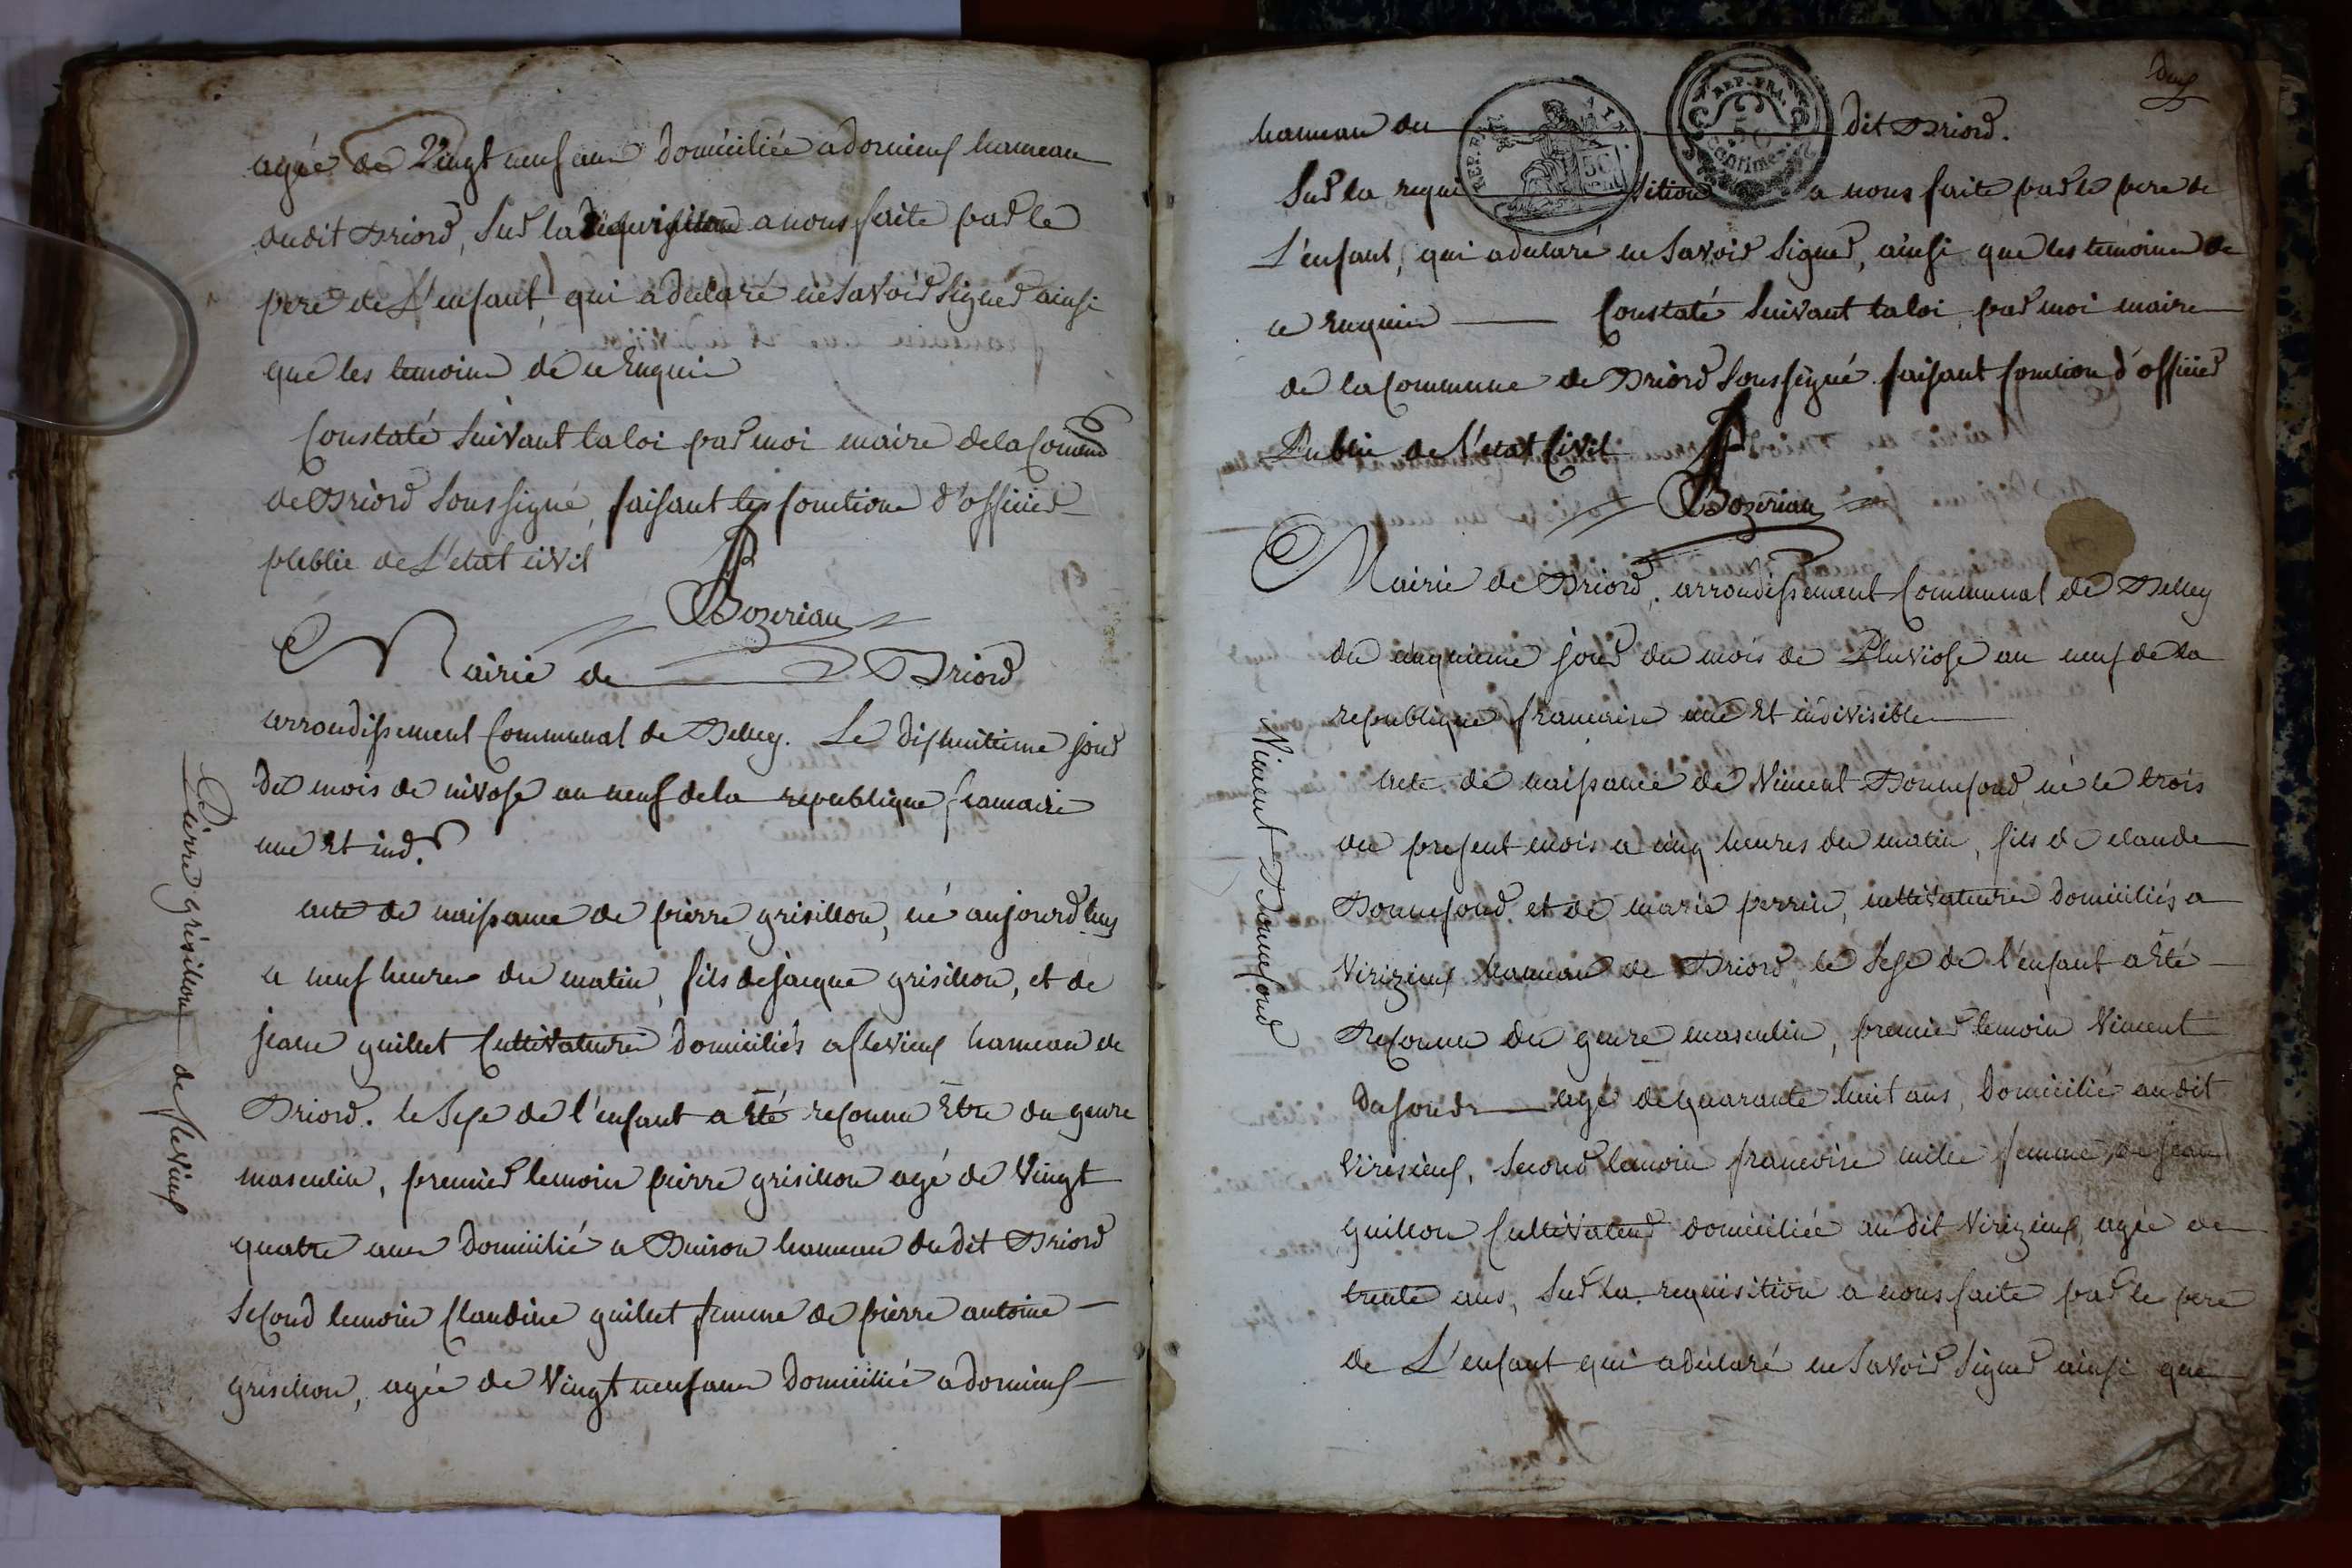 agée de Vingt neuf ans domiciliée a dornieuf hameau
dudit Briord, Sur la requisition a nous faite par le
pere de L'enfant, qui a declaré ne Savoir Signer ainsi
que les temoins de ce Enquis
Constaté Suivant la loi par moi maire de la Comune
de Briord Soussigné, faisant les fonctions d'officier
publie de L'etat civil
Bozerian
Mairie de Briord
arrondissement Communal de Belley. Le dixhuitieme jour
du mois de nivose an neuf de la republique francaise
une Et ind.
acte de naissance de pierre grisillon, né aujourdhuy
a neuf heures du matin, fils de jacque grisillon, et de
jeane guillet Cultivateurs domiciliés a flevieuf hameau de
Briord. le Sexe de l'enfant a Eté reconnu Etre du genre
masculin, premier temoin pierre grisillon agé de Vingt
quatre ans domicilié a Buison hameau dudit Briord
Second temoin Claudine guillet femme de pierre antoine
grisillon, agée de Vingt neuf ans domiciliée a dornieuf
Pierre grisillon de flevieuf
deux
hameau du dit Briord.
REP. FRA.
50
REP. FRA.
50
centimes
Sur la requisition a nous faite par le pere de
L'enfant, qui a declaré ne Savoir Signer, ainsi que les temoins de
ce Enquis Constaté Suivant la loi par moi maire
de la Commune de Briord Soussigné faisant fonction d'officier
Publie de l'etat Civil
Bozerian
Mairie de Briord, arrondissement Communal de Belley
du cinquieme jour du mois de Pluviose an neuf de la
republique francaise une Et indivisible
acte de naissance de Vincent Bonnefond, né le trois
du present mois a cinq heures du matin, fils de claude
Bonnefond et de marie perrin, cultivateurs domiciliés a
Virizieuf hameau de Briord, le Sexe de l'enfant a Eté
Reconnu du genre masculin, premier temoin Vincent
agé de quarante huit ans, domicilié audit
Viresieuf, Second temoin francoise femme de jean
guillon Cultivateur domiciliée audit Virizieuf, agée de
trente ans, Sur la requisition a nous faite par le pere
de L'enfant qui a declaré ne Savoir Signer ainsi que
Vincent Bonnefond